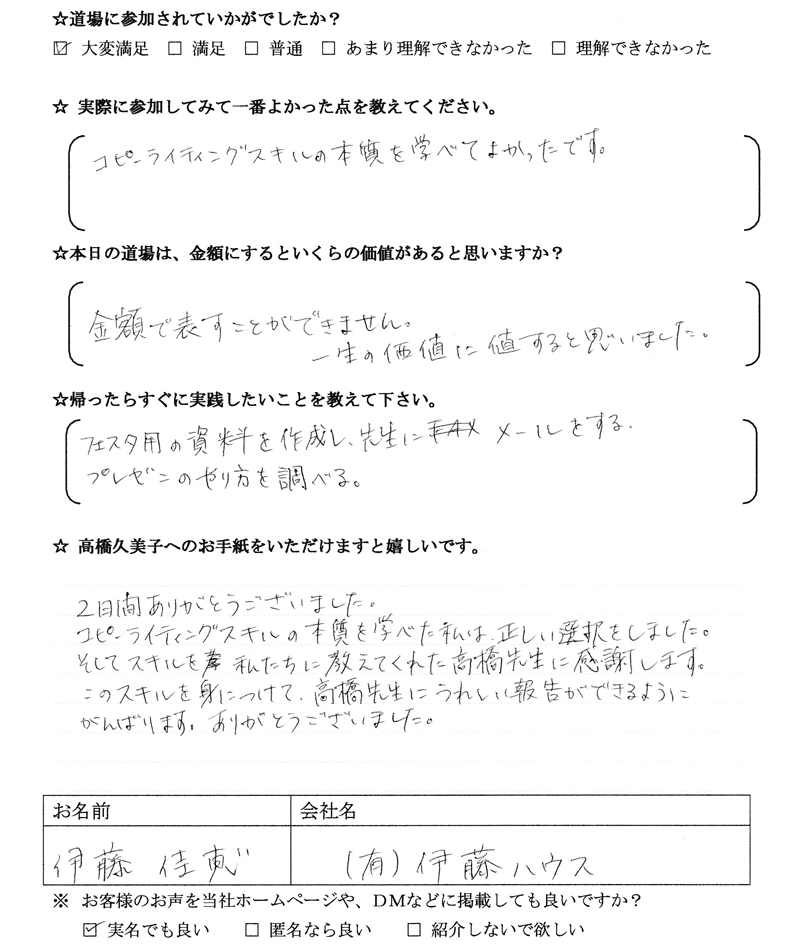 ☆道場に参加されていかがでしたか？
☑ 大変満足 □ 満足 □ 普通 □ あまり理解できなかった □ 理解できなかった
☆ 実際に参加してみて一番よかった点を教えてください。
コピーライティングスキルの本質を学べてよかったです。
☆本日の道場は、金額にするといくらの価値があると思いますか？
金額で表すことができません。
一生の価値に値すると思いました。
☆帰ったらすぐに実践したいことを教えて下さい。
フェスタ用の資料を作成し、先生に メールをする.
プレゼンのやり方を調べる。
☆ 高橋久美子へのお手紙をいただけますと嬉しいです。
2日間ありがとうございました。
コピーライティングスキルの本質を学べた私は、正しい選択をしました。
そしてスキルを 私たちに教えてくれた高橋先生に感謝します。
このスキルを身につけて、高橋先生にうれしい報告ができるように
がんばります。ありがとうございました。
お名前 会社名
伊藤 佳恵 (有)伊藤ハウス
※ お客様のお声を当社ホームページや、DMなどに掲載しても良いですか？
☑ 実名でも良い □ 匿名なら良い □ 紹介しないで欲しい